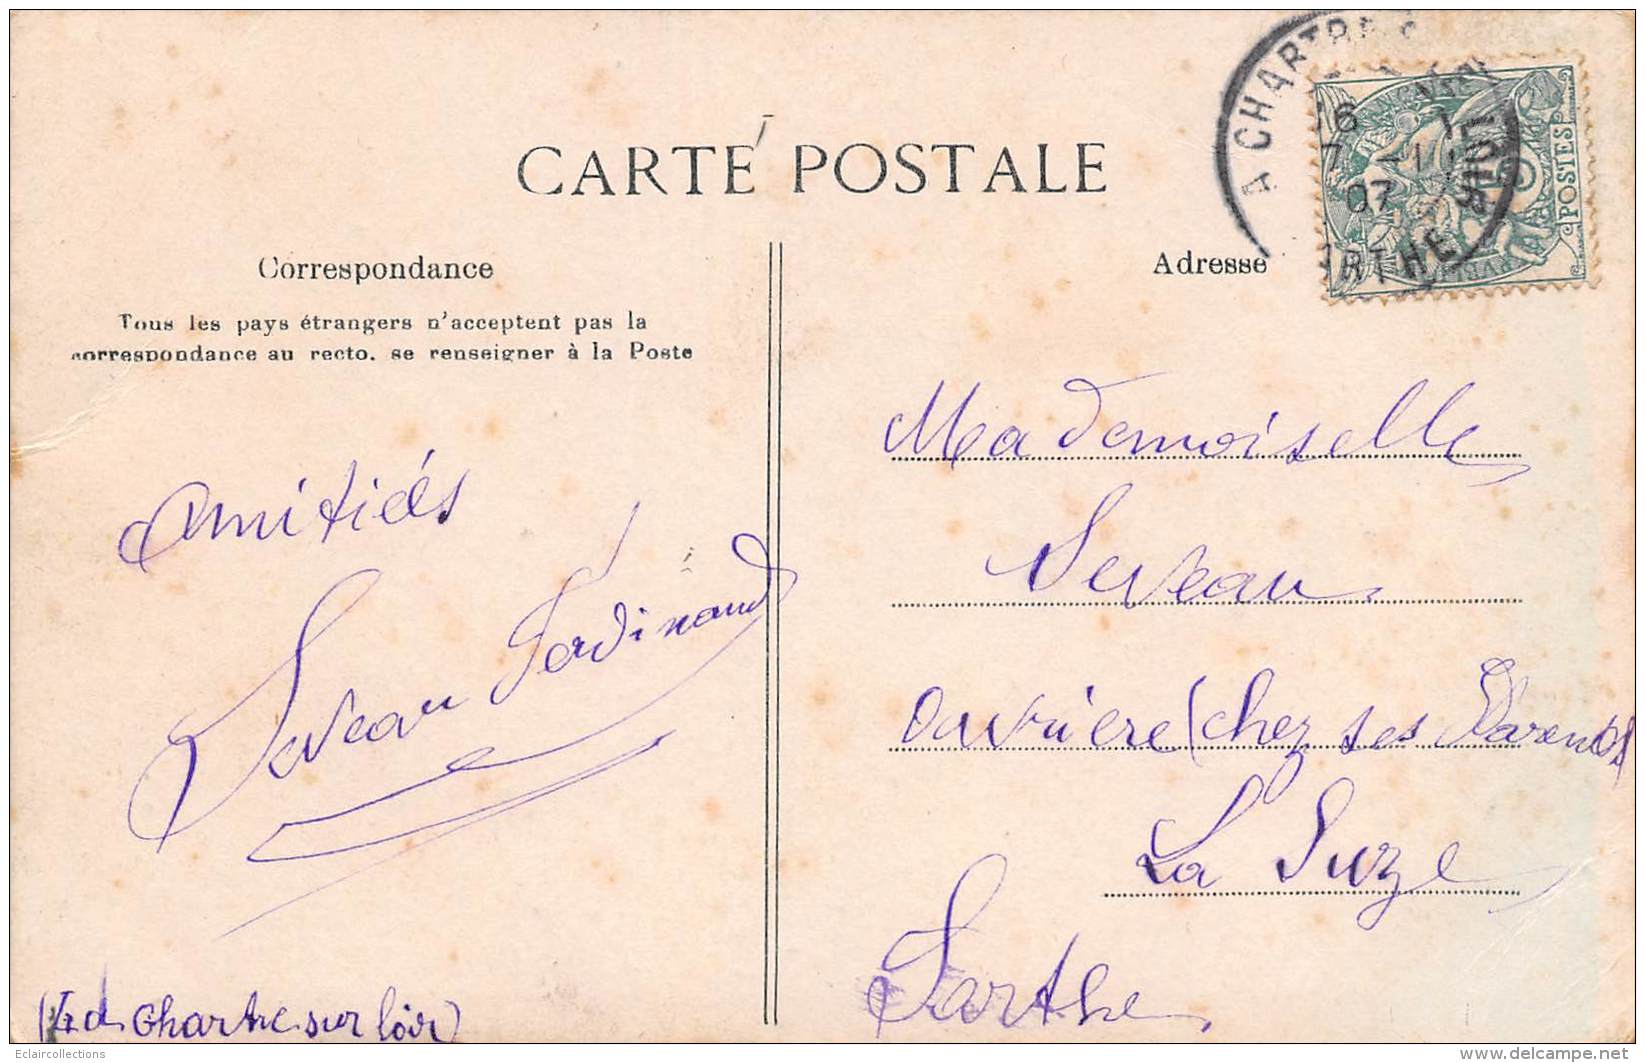 CARTE POSTALE
Correspondance
Tous les pays étrangers n'acceptent pas la
correspondance au recto. se renseigner à la Poste
Amitiés
Seveau Ferdinand
Chartre sur loir)
Adresse
A CHARTRE S
16
07
RTHE
POSTES
Mademoiselle
Seveau
Ouvrière (chez ses Parents)
La Suze
Sarthe
Eclaircollections
delcampe.net